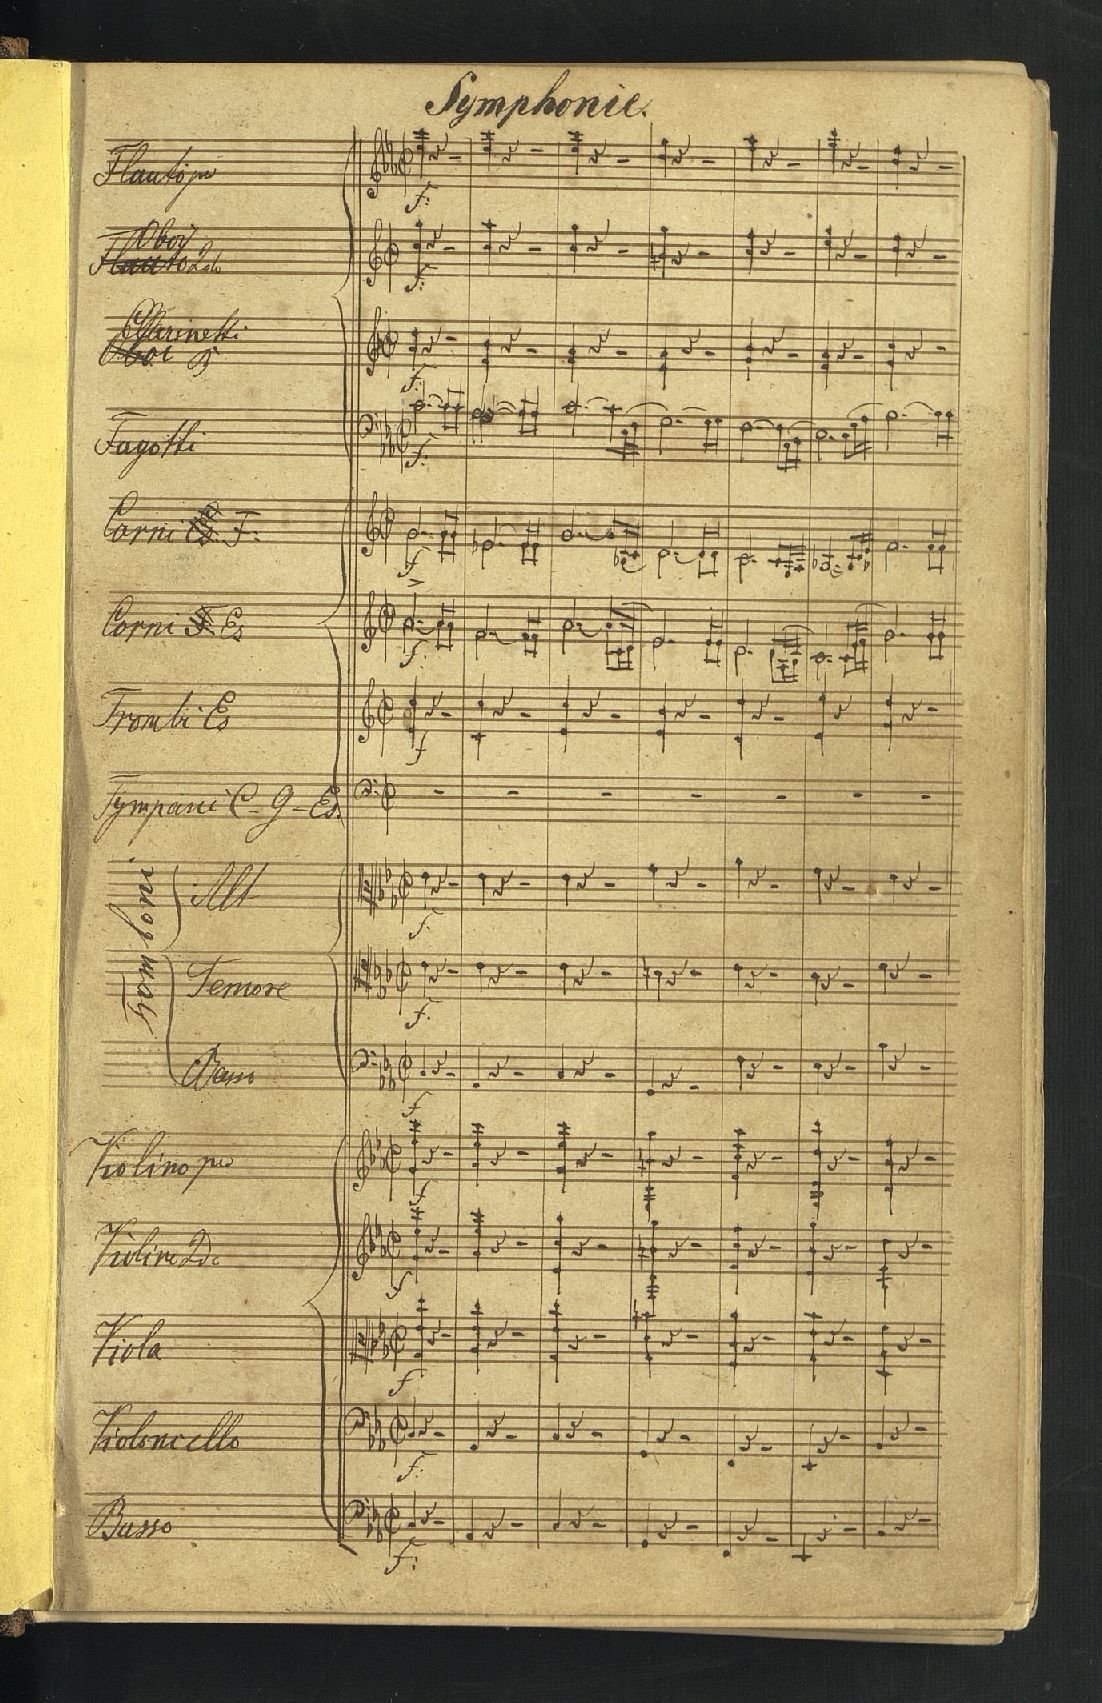 Symphonie.
Flauto pmo
f:
Oboi
Flauto 2do
f:
Clarinetti
Oboi B
f:
Fagotti
f:
Corni F:
f
Corni Es
f
Trombi Es
f
Tympani C - G - Es.
Tromboni
Alt
f.
Tenore
f.
Basso
f
Violino pmo
f
Violino 2do
f
Viola
f
Violoncello
f:
Basso
f: